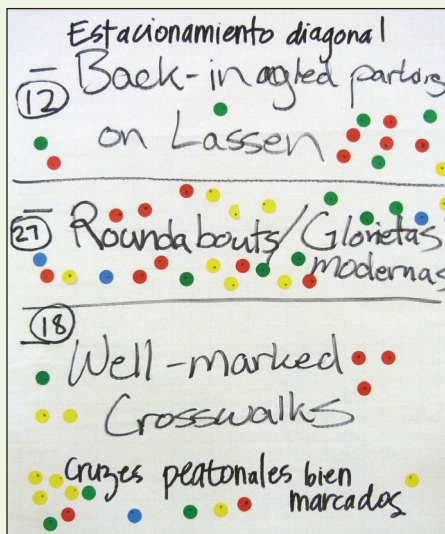 Estacionamiento diagonal
12 Back-in agled parking
on Lassen
27 Roundabouts/Glorietas
modernas
18
Well-marked
Crosswalks
Cruzes peatonales bien
marcados